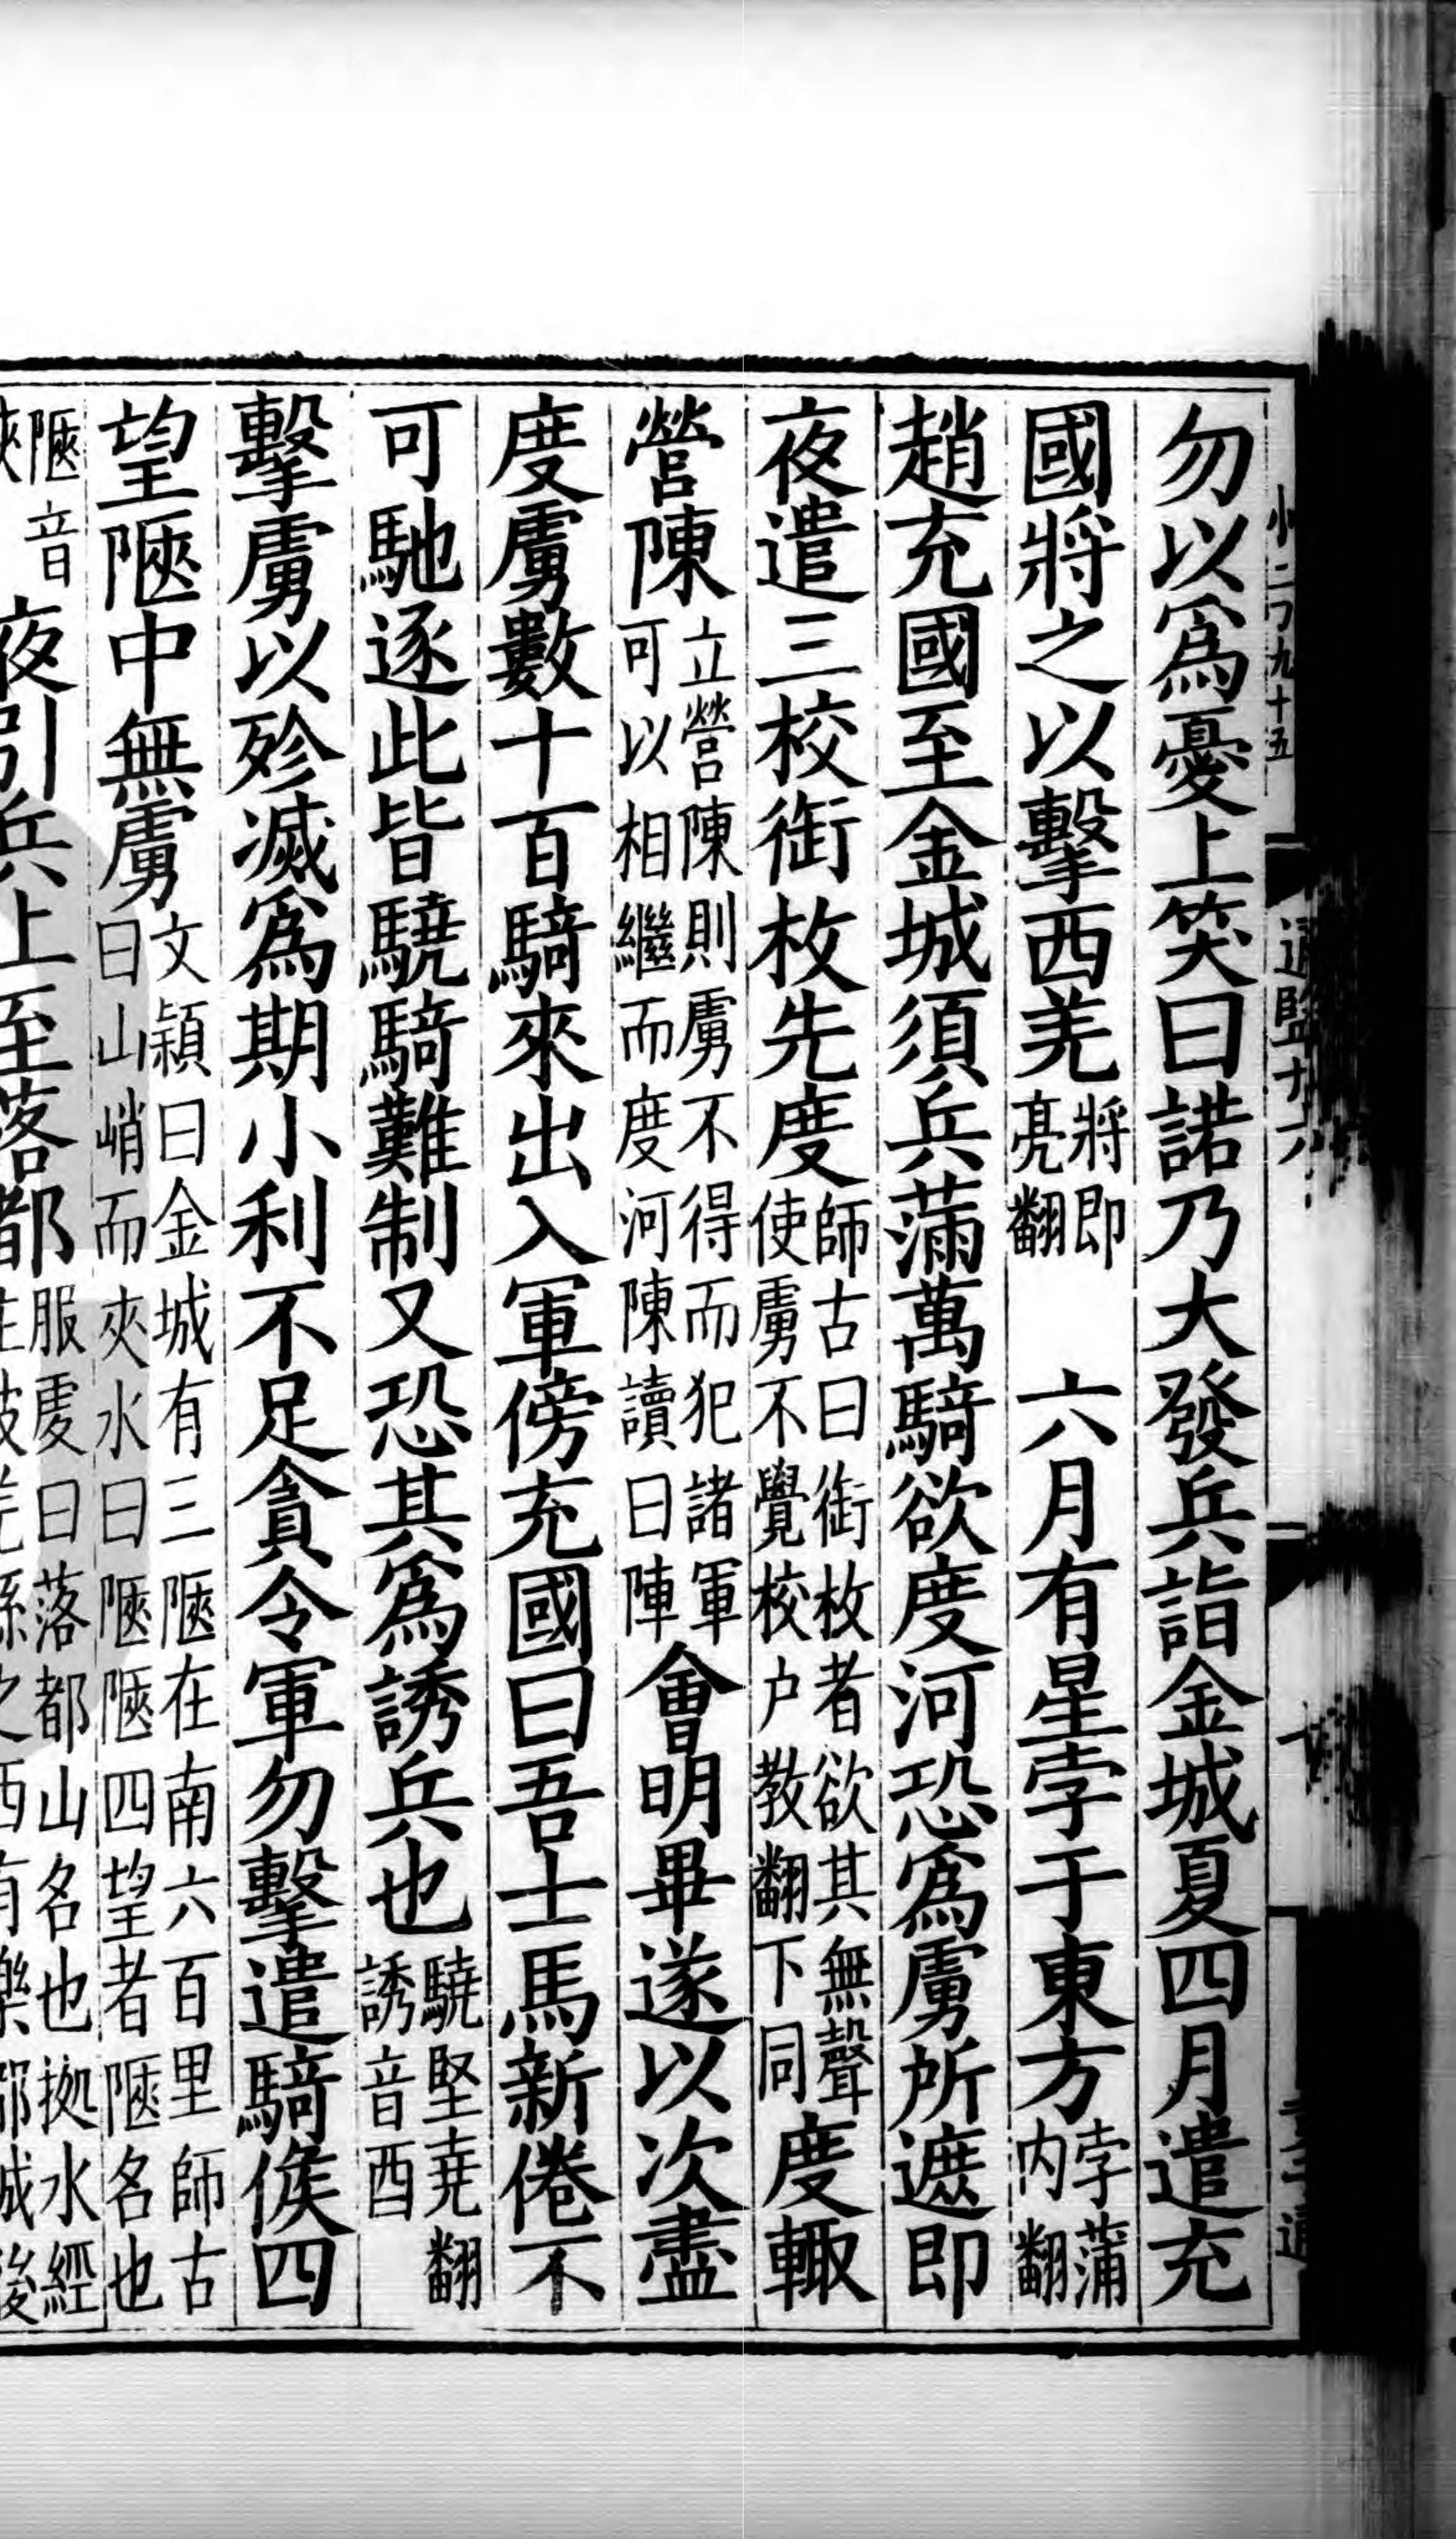 小二フ九十五
通鑑十六
勿以爲憂上笑曰諾乃大發兵詣金城夏四月遣充
國將之以擊西羌將即亮翻 六月有星孛于東方孛蒲内翻
趙充國至金城須兵滿萬騎欲度河恐爲虜所遮即
夜遣三校銜枚先度師古曰銜枚者欲其無聲使虜不覺校户教翻下同度輙
營陳立營陳則虜不得而犯諸軍可以相繼而度河陳讀曰陣會明畢遂以次盡
度虜數十百騎來出入軍傍充國曰吾士馬新倦不
可馳逐此皆驍騎難制又恐其爲誘兵也驍堅堯翻誘音酉
擊虜以殄滅爲期小利不足貪令軍勿擊遣騎候四
望陿中無虜文穎曰金城有三陿在南六百里師古曰山峭而夾水曰陿陿四望者陿名也
陿音夜引兵上至落都服虔曰落都山名也㩀水經